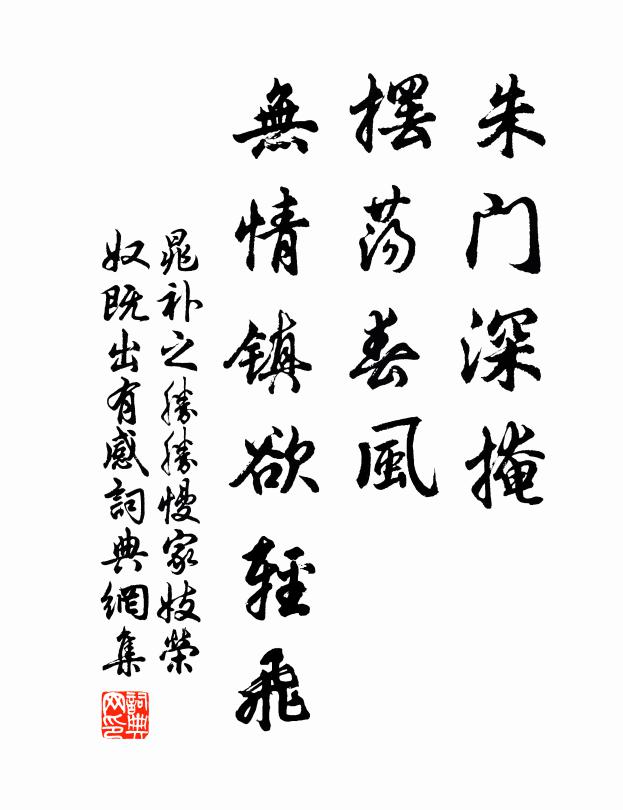 朱门深掩
摆荡春風
無情镇欲轻飛
晁补之勝勝慢家妓榮
奴既出有感詞典網集
詞典網印